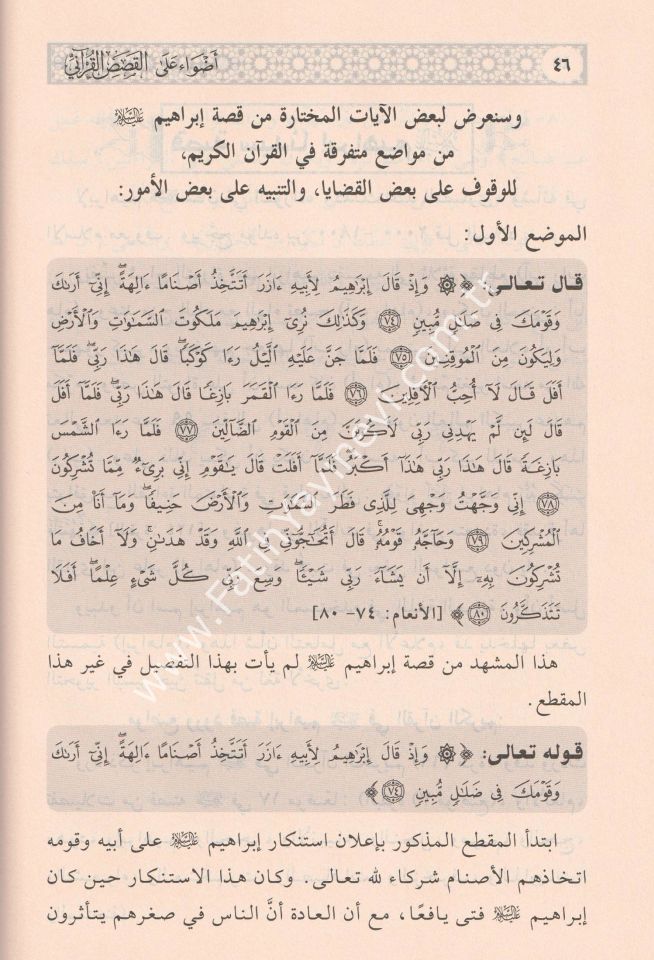 ٤٦
أضواء على القصص القرآني
وسنعرض لبعض الآيات المختارة من قصة إبراهيم عليه السلام
من مواضع متفرقة في القرآن الكريم،
للوقوف على بعض القضايا، والتنبيه على بعض الأمور:
الموضع الأول:
قال تعالى: ﴿ ۞ وَإِذْ قَالَ إِبْرَٰهِيمُ لِأَبِيهِ ءَازَرَ أَتَتَّخِذُ أَصْنَامًا ءَالِهَةً ۖ إِنِّىٓ أَرَىٰكَ
وَقَوْمَكَ فِى ضَلَٰلٍ مُّبِينٍ ٧٤ وَكَذَٰلِكَ نُرِىٓ إِبْرَٰهِيمَ مَلَكُوتَ السَّمَٰوَٰتِ وَالْأَرْضِ
وَلِيَكُونَ مِنَ الْمُوقِنِينَ ٧٥ فَلَمَّا جَنَّ عَلَيْهِ الَّيْلُ رَءَا كَوْكَبًا ۖ قَالَ هَٰذَا رَبِّى ۖ فَلَمَّآ
أَفَلَ قَالَ لَآ أُحِبُّ الْآفِلِينَ ٧٦ فَلَمَّا رَءَا الْقَمَرَ بَازِغًا قَالَ هَٰذَا رَبِّى ۖ فَلَمَّآ أَفَلَ
قَالَ لَئِن لَّمْ يَهْدِنِى رَبِّى لَأَكُونَنَّ مِنَ الْقَوْمِ الضَّآلِّينَ ٧٧ فَلَمَّا رَءَا الشَّمْسَ
بَازِغَةً قَالَ هَٰذَا رَبِّى هَٰذَآ أَكْبَرُ ۖ فَلَمَّآ أَفَلَتْ قَالَ يَٰقَوْمِ إِنِّى بَرِىٓءٌ مِّمَّا تُشْرِكُونَ
٧٨ إِنِّى وَجَّهْتُ وَجْهِىَ لِلَّذِى فَطَرَ السَّمَٰوَٰتِ وَالْأَرْضَ حَنِيفًا ۖ وَمَآ أَنَا۠ مِنَ
الْمُشْرِكِينَ ٧٩ وَحَآجَّهُۥ قَوْمُهُۥ ۚ قَالَ أَتُحَٰٓجُّوٓنِّى فِى اللَّهِ وَقَدْ هَدَىٰنِ ۚ وَلَآ أَخَافُ مَا
تُشْرِكُونَ بِهِۦٓ إِلَّآ أَن يَشَآءَ رَبِّى شَيْـًٔا ۗ وَسِعَ رَبِّى كُلَّ شَىْءٍ عِلْمًا ۗ أَفَلَا
تَتَذَكَّرُونَ ٨٠ ﴾ [الأنعام: ٧٤- ٨٠]
هذا المشهد من قصة إبراهيم عليه السلام لم يأت بهذا التفصيل في غير هذا
المقطع.
قوله تعالى: ﴿ ۞ وَإِذْ قَالَ إِبْرَٰهِيمُ لِأَبِيهِ ءَازَرَ أَتَتَّخِذُ أَصْنَامًا ءَالِهَةً ۖ إِنِّىٓ أَرَىٰكَ
وَقَوْمَكَ فِى ضَلَٰلٍ مُّبِينٍ ٧٤ ﴾
ابتدأ المقطع المذكور بإعلان استنكار إبراهيم عليه السلام على أبيه وقومه
اتخاذهم الأصنام شركاء لله تعالى. وكان هذا الاستنكار حين كان
إبراهيم عليه السلام فتى يافعًا، مع أن العادة أنَّ الناس في صغرهم يتأثرون
www.Fatihyayinevi.com.tr